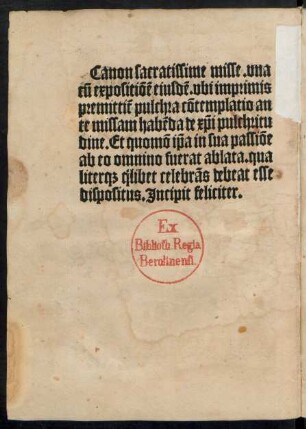 Canon sacratissime misse. vna
cũ expositiõe eiusdẽ. vbi imprimis
premittit̃ pulchra cõtemplatio an
te missam habẽda de xp̃i pulchritu
dine. Et quomõ ip̃a in sua passiõe
ab eo omnino fuerat ablata. qua
literqꝫ q̃libet celebrãs debeat esse
dispositus. Incipit feliciter.
Ex
Biblioth. Regia
Berolinensi.